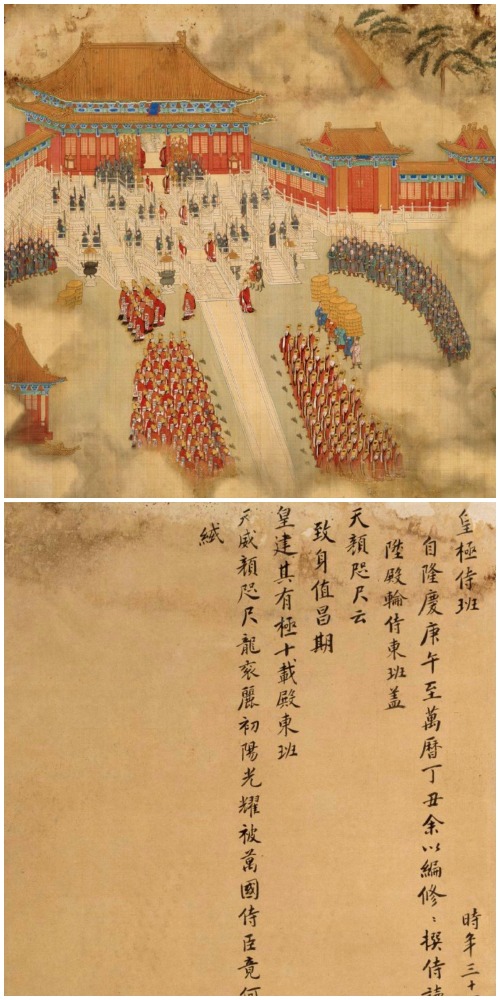 皇極侍班 時年三十
自隆慶庚午至萬曆丁丑余以編修〻撰侍
陞殿輪侍東班蓋
天顏咫尺云
致身值昌期
皇建其有極十載殿東班
天威顏咫尺龍衮麗初陽光耀被萬國侍臣竟何
緎